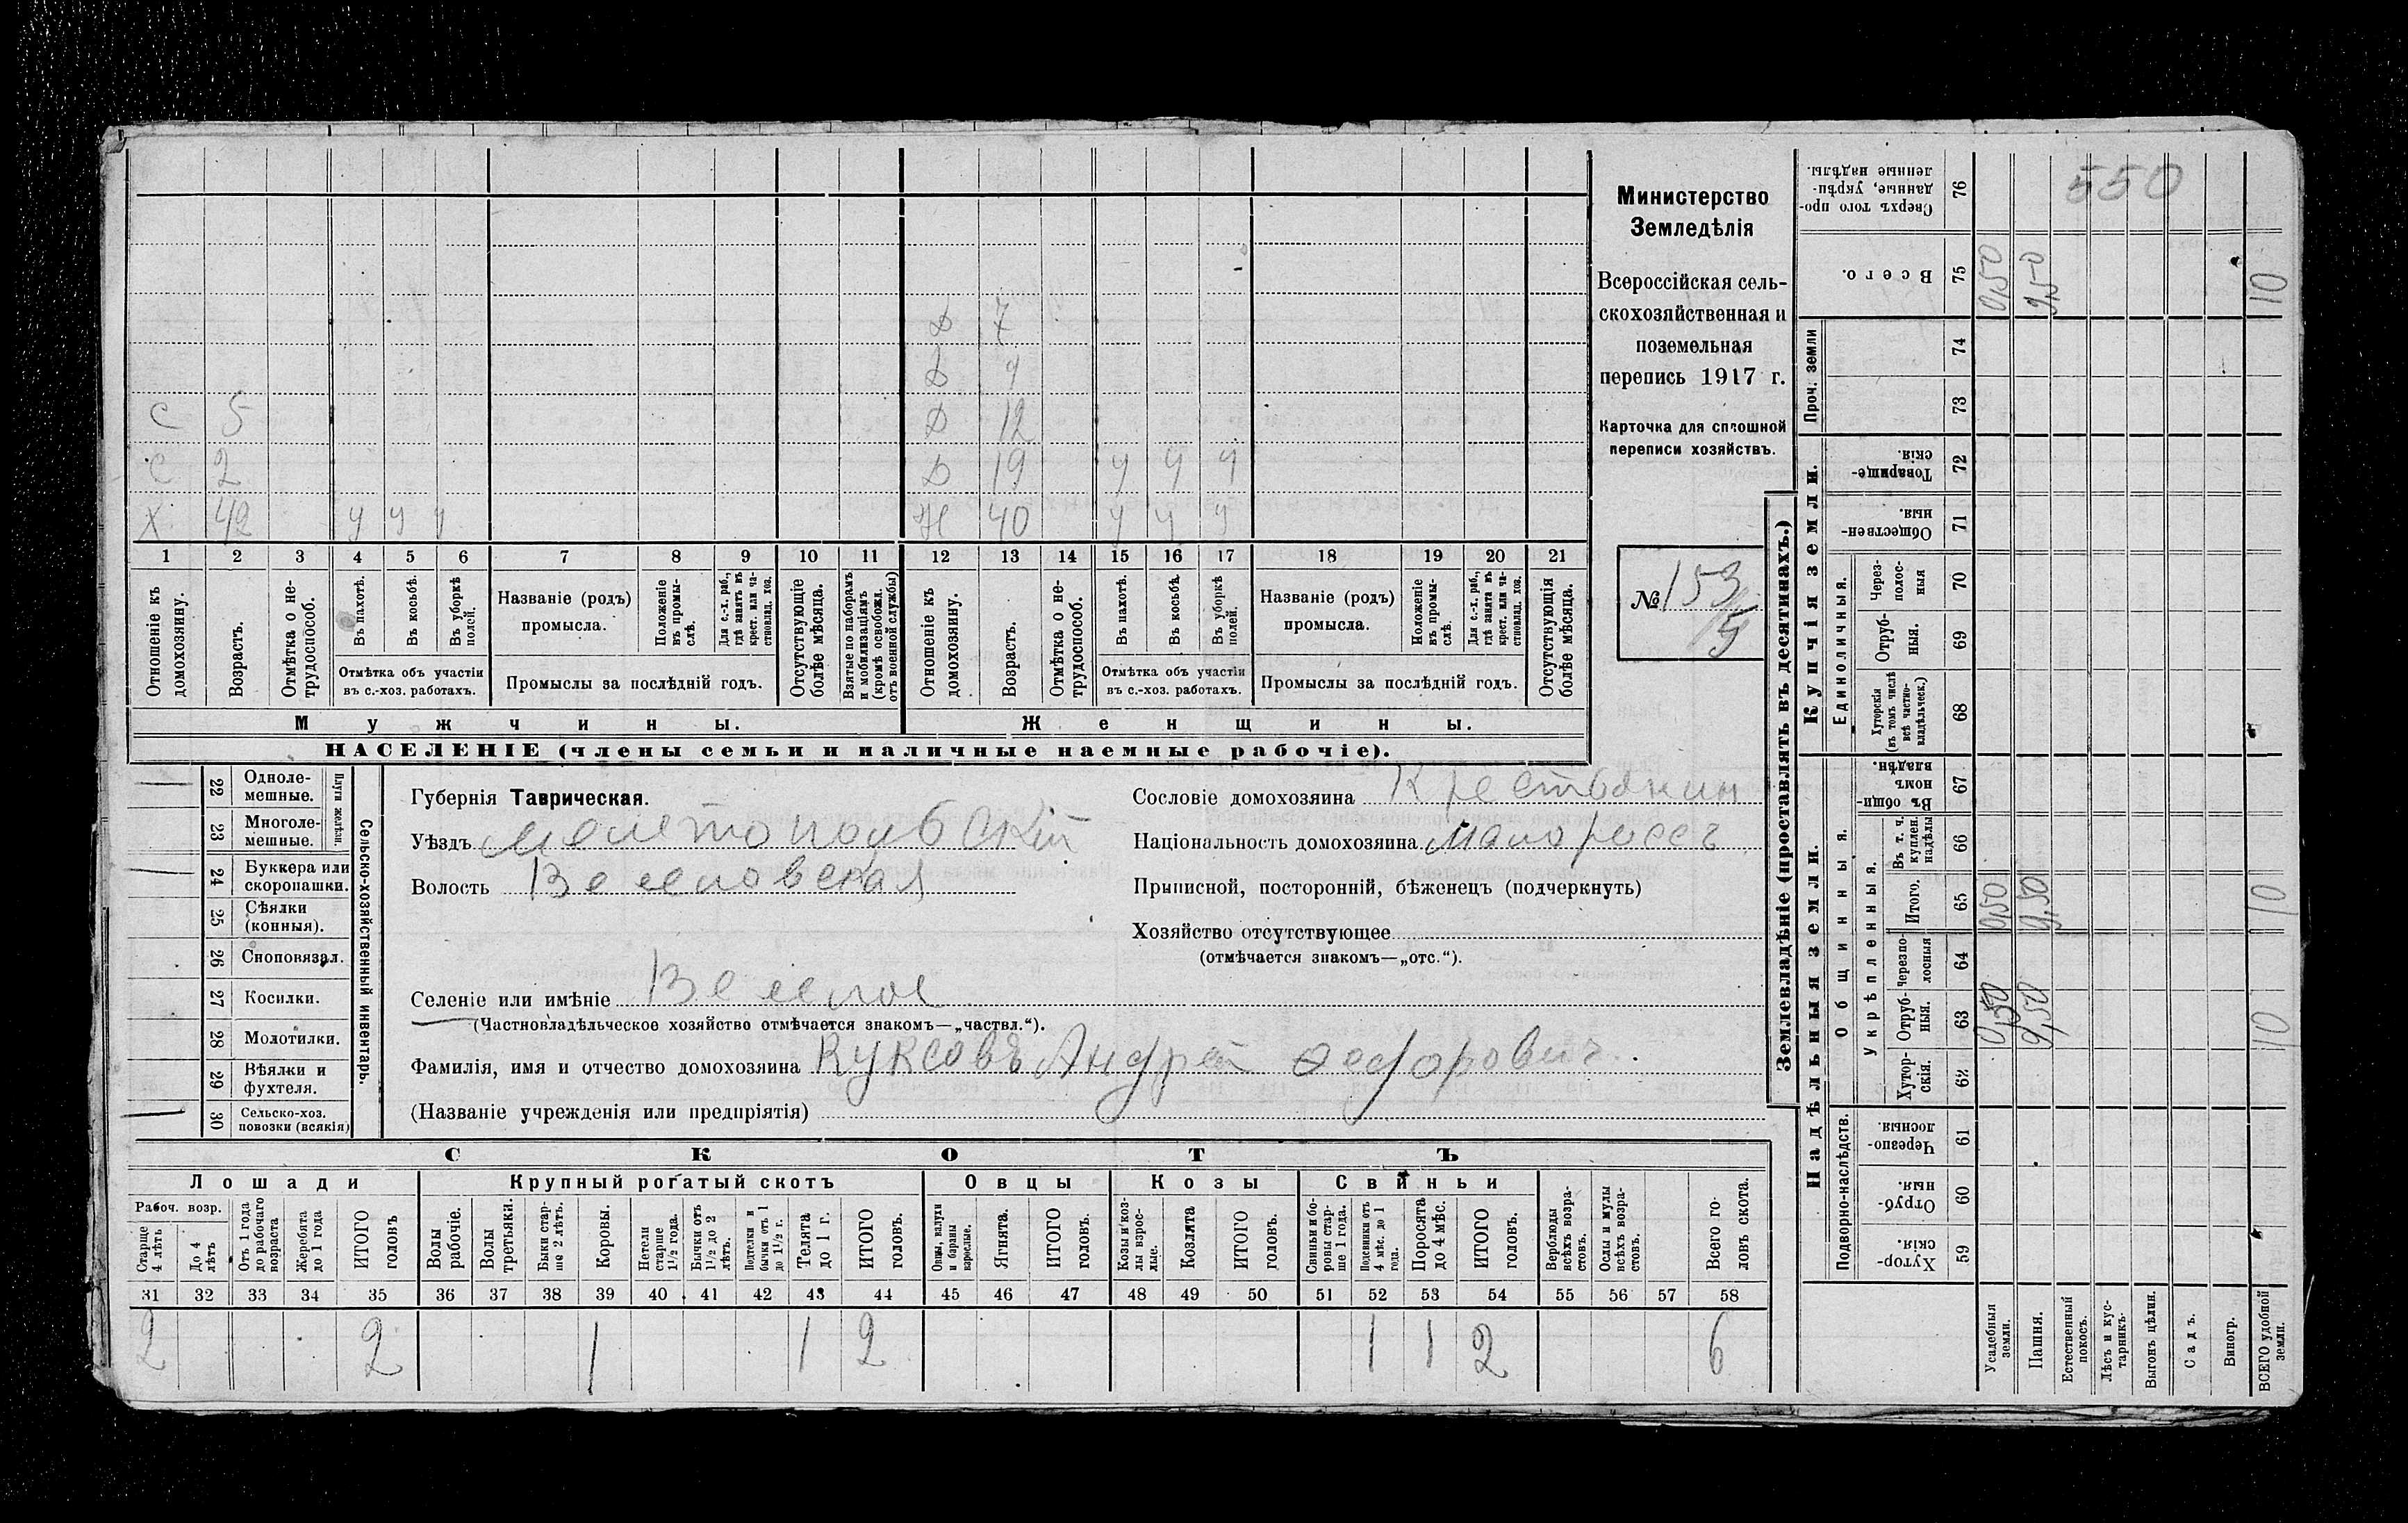 Министерство
Земледѣлія
Всероссійская сель-
скохозяйственная и
поземельная
перепись 1917 г.
Карточка для сплошной
переписи хозяйствъ.
№ 153/5
Д 7
Д 9
С 5 Д 12
С 2 Д 19 у у у
Х 42 у у у Ж 40 у у у
1 2 3 4 5 6 7 8 9 10 11 12 13 14 15 16 17 18 19 20 21
Отношеніе къ домохозяину.
Возрастъ.
Отмѣтка о не-трудоспособ.
Въ пахотѣ.
Въ косьбѣ.
Въ уборкѣ полей.
Отмѣтка объ участіи
въ с.-хоз. работахъ.
Названіе (родъ)
промысла.
Положеніе въ промы-слѣ.
Для с.-х. раб., гдѣ занятъ въ крест. или ча-ствовлад. хоз.
Промыслы за послѣдній годъ.
Отсутствующіе болѣе мѣсяца.
Взятые по наборамъ и мобилизаціямъ (кромѣ освобожд. отъ военной службы)
Отношеніе къ домохозяину.
Возрастъ.
Отмѣтка о не-трудоспособ.
Въ пахотѣ.
Въ косьбѣ.
Въ уборкѣ полей.
Отмѣтка объ участіи
въ с.-хоз. работахъ.
Названіе (родъ)
промысла.
Положеніе въ промы-слѣ.
Для с.-х. раб., гдѣ занята въ крест. или ча-ствовлад. хоз.
Промыслы за послѣдній годъ.
Отсутствующія болѣе мѣсяца.
Мужчины. Женщины.
НАСЕЛЕНІЕ (члены семьи и наличные наемные рабочіе).
Сельско-хозяйственный инвентарь.
Плуги желѣзн.
22 Одноле-мешные.
23 Многоле-мешные.
24 Буккера или скоропашки.
25 Сѣялки (конныя).
26 Сноповязал.
27 Косилки.
28 Молотилки.
29 Вѣялки и фухтеля.
30 Сельско-хоз. повозки (всякія)
Губернія Таврическая.
Уѣздъ Мелитопольскій
Волость Веселовская
Сословіе домохозяина Крестьянин
Національность домохозяина малороссъ
Приписной, посторонній, бѣженецъ (подчеркнуть)
Хозяйство отсутствующее
(отмѣчается знакомъ—„отс.“).
Селеніе или имѣніе Веселое
(Частновладѣльческое хозяйство отмѣчается знакомъ—„частвл.“).
Фамилія, имя и отчество домохозяина Куксовъ Андрей Ѳедорович
(Названіе учрежденія или предпріятія)
СКОТЪ
Лошади Крупный рогатый скотъ Овцы Козы Свиньи
Рабоч. возр.
Старше 4 лѣтъ
До 4 лѣтъ
Отъ 1 года до рабочаго возраста
Жеребята до 1 года
ИТОГО головъ
Волы рабочіе.
Волы третьяки.
Быки стар-ше 2 лѣтъ.
Коровы.
Нетели старше 1½ года.
Бычки отъ 1½ до 2 лѣтъ.
Подтелки и бычки отъ 1 до 1½ г.
Телята до 1 г.
ИТОГО головъ.
Овцы, валухи и бараны взрослые.
Ягнята.
ИТОГО головъ.
Козы и коз-лы взрос-лые.
Козлята
ИТОГО головъ.
Свиньи и бо-ровы стар-ше 1 года.
Подсвинки отъ 4 мѣс. до 1 года.
Поросята до 4 мѣс.
ИТОГО головъ.
Верблюды всѣхъ возра-стовъ.
Ослы и мулы всѣхъ возра-стовъ.
Всего го-ловъ скота.
31 32 33 34 35 36 37 38 39 40 41 42 43 44 45 46 47 48 49 50 51 52 53 54 55 56 57 58
2 2 1 1 2 1 1 2 6
Землевладѣніе (проставлять въ десятинахъ.)
Купчія земли.
Надѣльныя земли.
Проч. земли
Единоличныя.
Общинныя.
Укрѣпленныя.
Подворно-наслѣдств.
Сверхъ того про-данные, укрѣп-ленные надѣлы. 76 550
Всего. 75 0,50 9,50 10
74
73
Товарище-скія. 72
Обществен-ныя. 71
Через-полос-ныя 70
Отруб-ныя. 69
Хуторскія (въ томъ числѣ всѣ частно-владѣльческ.) 68
Въ общин-номъ владѣн. 67
Въ т. ч. куплен. надѣлы 66
Итого. 65 0,50 9,50 10
Черезпо-лосныя 64
Отруб-ныя. 63 0,50 9,50 10
Хутор-скія. 62
Черезпо-лосныя 61
Отруб-ныя. 60
Хутор-скія. 59
Усадебныя земли.
Пашня.
Естественный покосъ.
Лѣсъ и кус-тарникъ.
Выгонъ цѣлин.
Садъ.
Виногр.
ВСЕГО удобной земли.